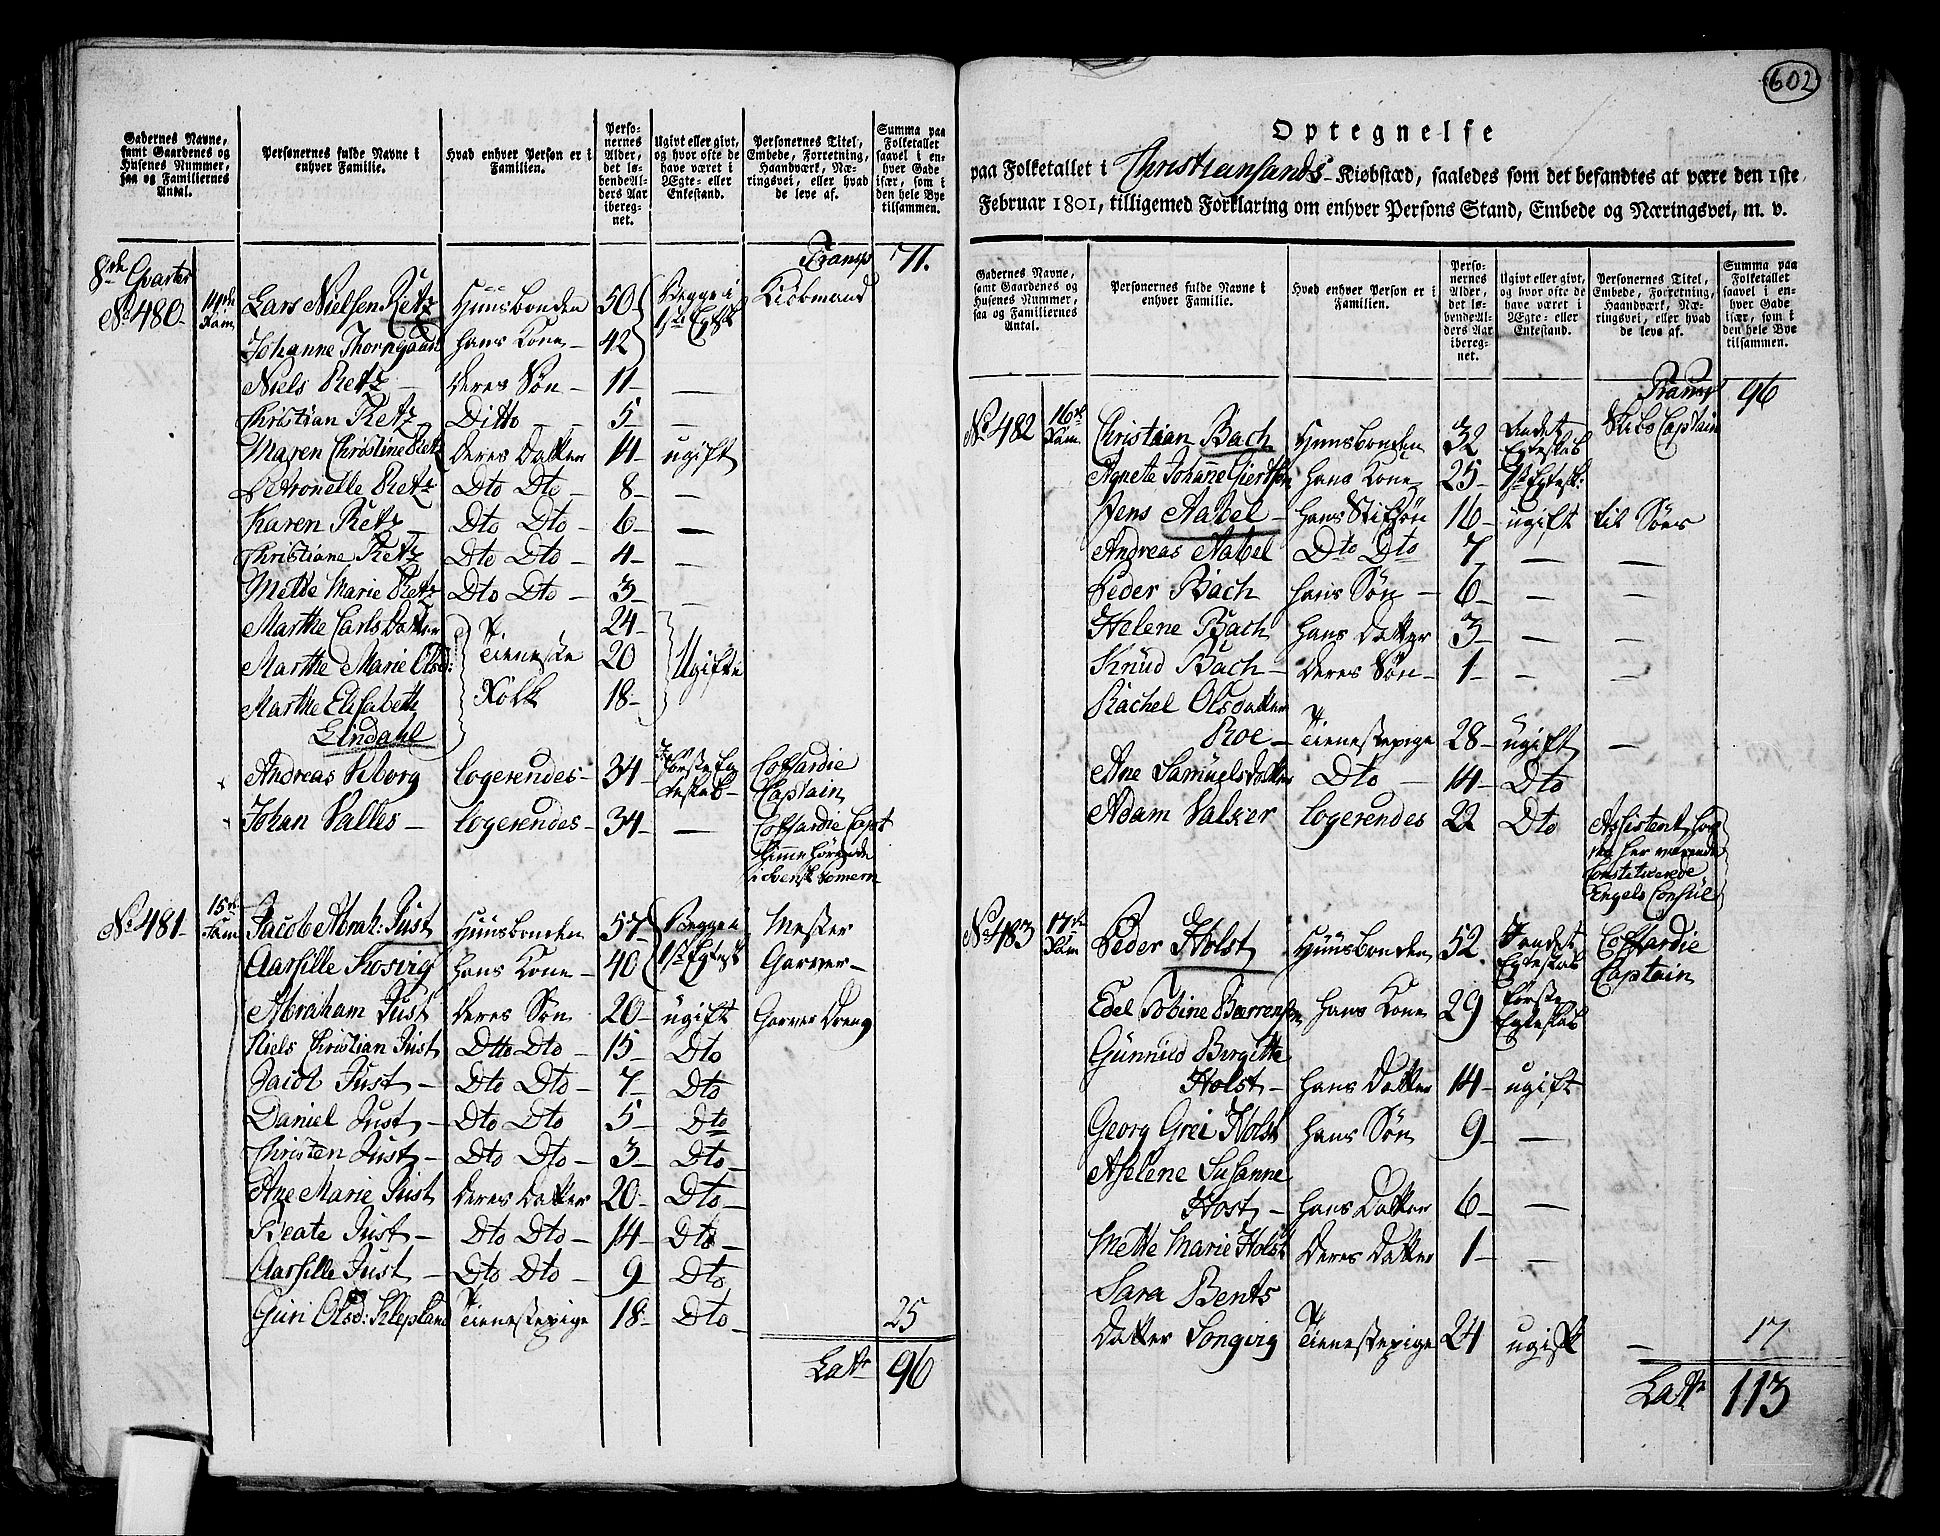 Gadernes Navne, samt Gaardenes og Husenes Nummer, saa og Familiernes Antal.
Personernes fulde Navne i enhver Familie.
Hvad enhver Person er i Familien.
Personernes Alder, det løbende Alders Aar iberegnet.
Ugivt eller givt, og hvor ofte de have været i Ægte- eller Enkestand.
Personernes Titel, Embede, Forretning, Haandværk, Næringsvei, eller hvad de leve af.
Summa paa Folketallet saavel i enhver Gade især, som i den hele Bye tilsammen.
Transp 71.
8de Qvarter
No 480 14de Fam. Lars Nielsen Retz Huusbonden 50 Begge i 1ste Egtsk Kiøbmand
Johanne Thorngaan hans Kone 42
Niels Retz Deres Søn 11 —
Christian Retz Ditto 5 —
Maren Christine Retz Deres Datter 14 ugift
Petronelle Retz Dto Dto 8 —
Karen Retz Dto Dto 6 —
Christiane Retz Dto Dto 4 —
Mette Marie Retz Dto Dto 3 —
Marthe Carls Datter 24
Marthe Marie Olsd: Tieneste 20 Ugifte
Marthe Elisabeth Folk 18
Lindahl
Andreas Viborg Logerendes 34 Første Egteskab Coffardie Captain
Johan Valles Logerendes 34 — Coffardie Capt
himmehørende
i Svensk Pomern
No 481 15de Fam Jacob Abrah: Just Huusbonden 57 Begge i 1ste Egtesk Mester
Aarsille Kosvig hans Kone 40 Garver
Abraham Just Deres Søn 20 ugift Garver Dreng
Niels Christian Just Dtto Dto 15 Dto
Jacob Just Dto Dto 7 Dto
Daniel Just Dto Dto 5 Dto
Christen Just Dto Dto 3 Dto
Ane Marie Just Deres Datter 20 Dto
Beate Just Dto Dto 14 Dto
Aarsille Just Dto Dto 9 Dto
Guri Olsd: Klepland Tienestepige 18 Dto 25
Latr 96
602
Optegnelse
paa Folketallet i Christiansands-Kiøbstæd, saaledes som det befandtes at være den 1ste
Februar 1801, tilligemed Forklaring om enhver Persons Stand, Embede og Næringsvei, m. v.
Gadernes Navne, samt Gaardenes og Husenes Nummer, saa og Familiernes Antal.
Personernes fulde Navne i enhver Familie.
Hvad enhver Person er i Familien.
Personernes Alder, det løbende Alders Aar iberegnet.
Ugivt eller givt, og hvor ofte de have været i Ægte- eller Enkestand.
Personernes Titel, Embede, Forretning, Haandværk, Næringsvei, eller hvad de leve af.
Summa paa Folketallet saavel i enhver Gade især, som i den hele Bye tilsammen.
Transp 96
No 482 16de Fam Christian Bach Huusbonden 32 Andet Egteskab Skibs Captain
Agnete Johanne Giertsen hans Kone 25 1ste Egtesk:
Jens Aabel hans Stifsøn 16 ugift til Søes
Andreas Aabel Dto Dto 7 — —
Peder Bach hans Søn 6 — —
Helene Bach hans Datter 3 — —
Knud Bach Deres Søn 1 — —
Rachel Olsdatter
Roe Tienestepige 28 ugift —
Ane Samuels Datter Dto 14 Dto
Adam Valker Logerendes 22 Dto Assistent
her værende
Constituerede
Engels Consul
No 483 17de Fam Peder Holst Huusbonden 52. Andet Egteskab Coffardie Captain
Edel Tobine Barrensen hans Kone 29 Første Egteskab
Gunnild Birgitte
Holst hans Datter 14 ugift
Georg Grei Holst hans Søn 9 —
Aselene Susanne
Host hans Datter 6 —
Mette Marie Holst Deres Datter 1 —
Sara Bents
Datter Songvig Tienestepige 24 ugift — 17
Latr 113